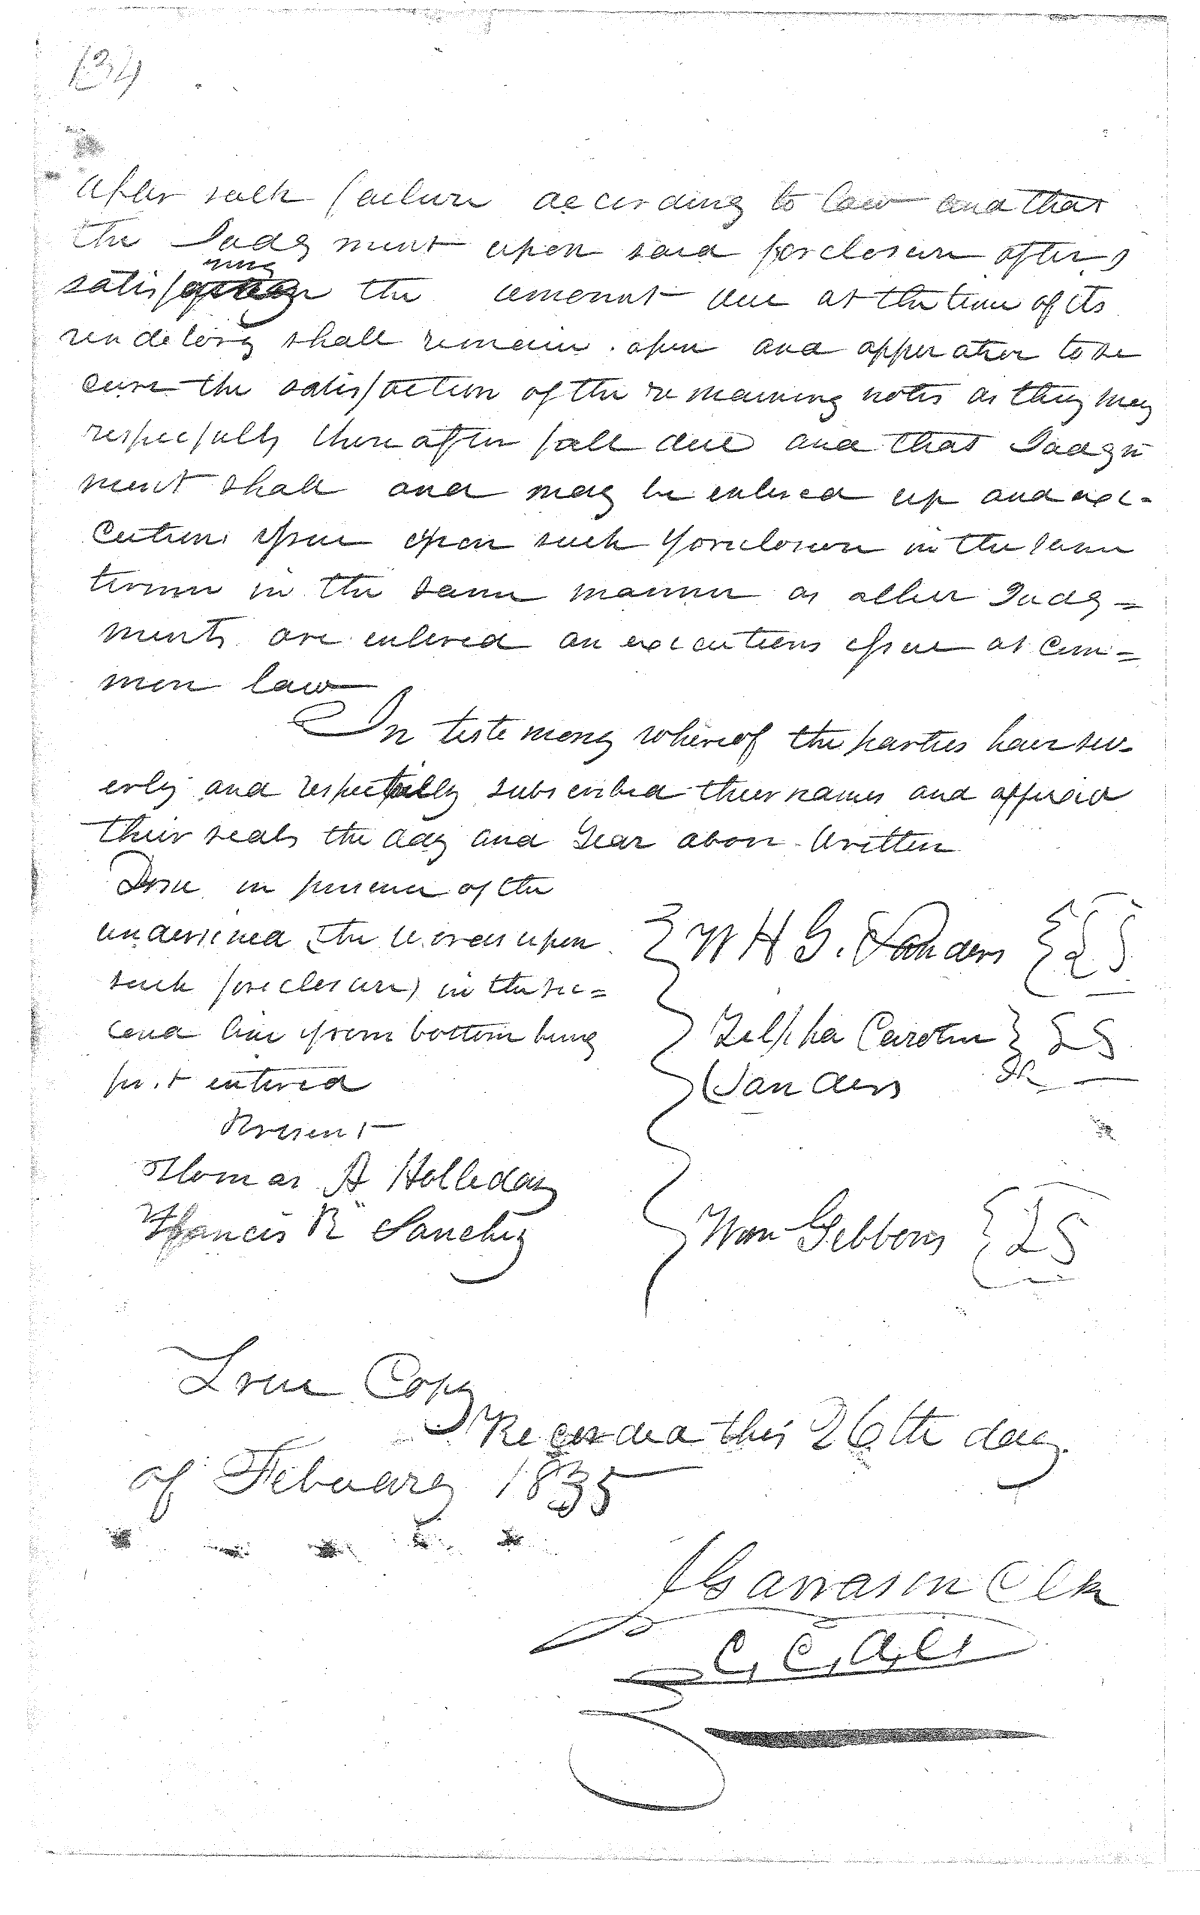 134
after such failure according to law and that
the Judgment upon said foreclosure after
satisfying the amount due at the time of its
rendelory shall remain open and apperation to se
cure the satisfaction of the remaining notes as they may
respecfully thereafter fall due and that Judgm
ment shall and may be entered up and exe-
cutions issue upon such foreclosure in the same
terms in the same manner as other Judg=
ments are entered an executions issue at com=
mon law
In testemony whereof the parties have sev-
erly and respectfully subscribed their names and affixed
their seals the day and year above written
Done in presence of the
undersined (the words upon
such foreclosure) in the se=
cond line from bottom being
first entered
Present
Thomas A Holleday
Francis R Sanchez
W H G. Sanders {LS}
Zilpha Caroline } LS
Sanders
Wm Gibbons {LS}
True Copy
Recorded this 26th day
of Febuary 1835
J Garrason Clk
C. C. A. C.